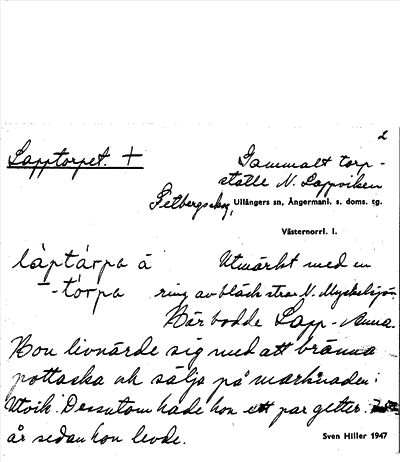 2
Lapptorpet. +
Gammalt torp-
ställe N. Lappviken
Ullångers sn, Ångermanl. s. doms. tg.
Västernorrl. l.
låptårpa å
Utmärkt med en
-tórpa
ring av bläck strax N. Myckelsjön.
Här bodde Lapp-Anna.
Hon livnärde sig med att bränna
pottaska och sälja på marknaden i
Utvik. Dessutom hade hon ett par getter.
år sedan hon levde.
Sven Hiller 1947